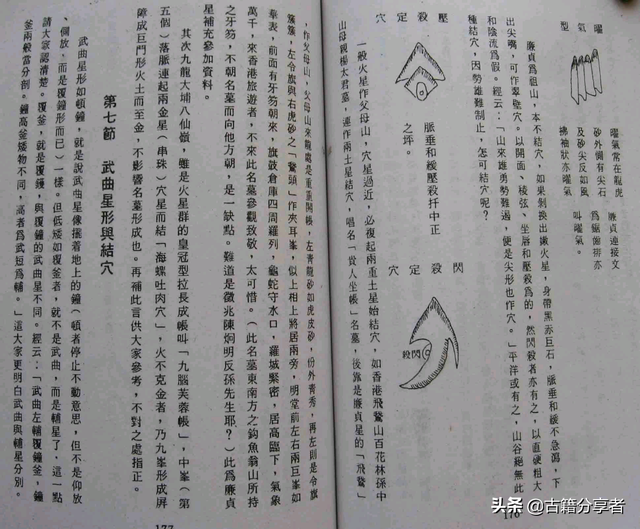 曜氣型
曜氣常在龍虎
砂外側有尖石
及砂尖反如風
拂袖狀亦曜氣
廉貞連接文
叫曜氣。
廉貞爲祖山，本不結穴，如果剝換出嫩火星，身帶黑赤巨石，脈垂和緩不急瀉，下
出尖嘴，可作翠壁穴。以開面、棱弦、坐唇和陰爲的，然閃殺者亦有之，以直硬粗大
和陰流爲假。經云：「山來雄勇勢難過，便是尖形也作穴。」平洋或有之，山谷絕無此
種結穴，因勢雄難制止，怎可結穴呢？
壓殺定穴
脈垂和緩壓殺扦中正
之坪。
閃殺定穴
閃殺
一般火星作父母山，穴星過近，必復起兩重土星始結穴，如香港飛鵞山百花林孫中
山母親楊太君墓，連作兩土星結穴，唱名「貴人坐帳」名墓，後靠是廉貞星的「飛鵞」
176
，作父母山，父母山來龍處是重重開帳，左青龍砂如虎皮砂，份外靑秀，再左則是令旗
簇簇，左令旗與右虎砂之「鵞頭」作夾耳峯，似上相上將居兩旁，明堂前左右兩巨峯如
華表，前面有牙笏朝來，旗鼓倉庫四周羅列，龜蛇守水口，羅城緊密，居高臨下，氣象
萬千，來香港旅遊者，不來此名墓參觀致敬，太可惜。（此名墓東南方之釣魚翁山所持
之牙笏，不朝名墓而向他方朝，是一缺點。難道是徵兆陳炯明反孫先生耶？）此爲廉貞
星補充參加資料。
其次九龍大埔八仙嶺，雖是火星群的皇冠型拉長成帳叫「九腦芙蓉帳」，中峯（第
五個）落脈連起兩金星（串珠）穴星而結「海螺吐肉穴」，火不克金者，乃九峯形成屏
障成巨門形火土而至金，不影響名墓形成也。再補此言供大家參考，不對之處指正。
第七節　武曲星形與結穴
武曲星形如頓鐘，就是說武曲星像擺着地上的鐘（頓者停止不動意思，但不是仰放
、側放，而是覆鐘形而已）一樣。但低矮如覆釜者，就不是武曲，而是輔星了，這一點
請大家認清楚。覆釜，就是覆鑊，與覆鐘的武曲星不同。經云：「武曲左輔覆鐘釜，鐘
釜兩般當分剖。鐘高釜矮物不同，高者爲武短爲輔。」這大家更明白武曲與輔星分別。
177
头条 @古籍分享者